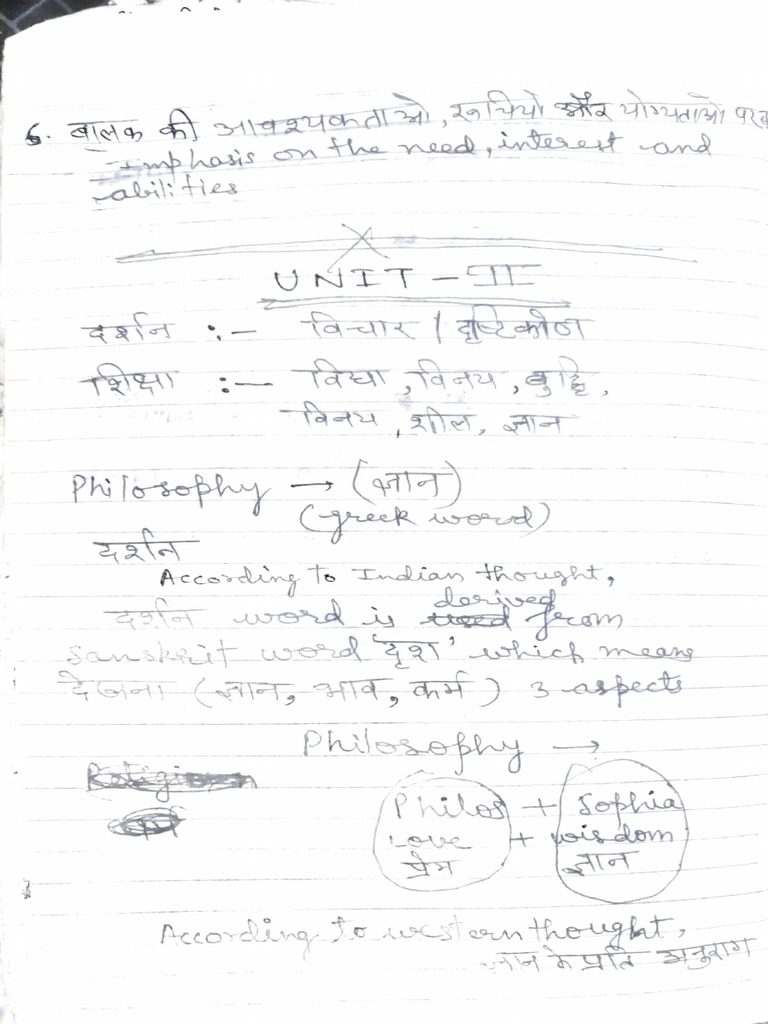 6. बालक की आवश्यकताओ, रूचियो और योग्यताओ पर
Emphasis on the need, interest and
abilities
UNIT - III
दर्शन :- विचार / दृष्टिकोण
शिक्षा :- विद्या, विनय, बुद्धि,
विनय, शील, ज्ञान
Philosophy → (ज्ञान)
(greek word)
दर्शन
According to Indian thought,
दर्शन word is derived from
sanskrit word 'दृश' which means
देखना (ज्ञान, भाव, कर्म) 3 aspects
Philosophy →
Philos + Sophia
Love + wisdom
प्रेम ज्ञान
According to western thought,
ज्ञान के प्रति अनुराग